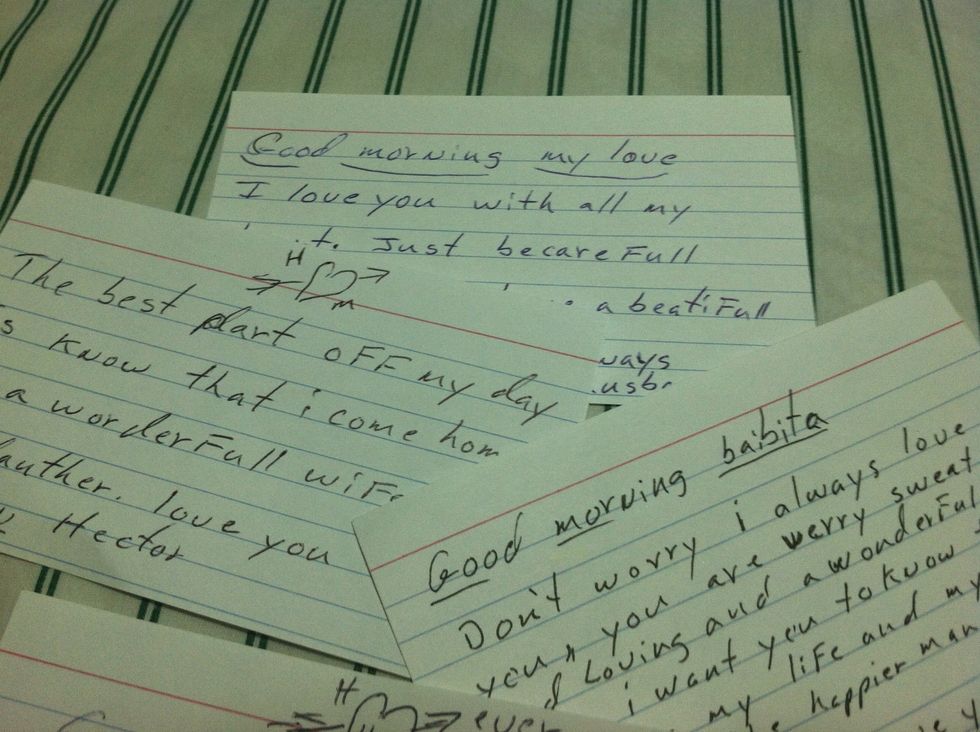 Good morning my love
I love you with all my
t. Just becareFull
a beatiFull
ways
.usb
H
m
The best part oFF my day
s know that i come hom
a worderFull wiFe
auther. love you
Hector
Good morning baibita
Don't worry i always love
you, you are werry sweat
Loving and a wonderFul
i want you to know
my liFe and my
happier man
H
ever